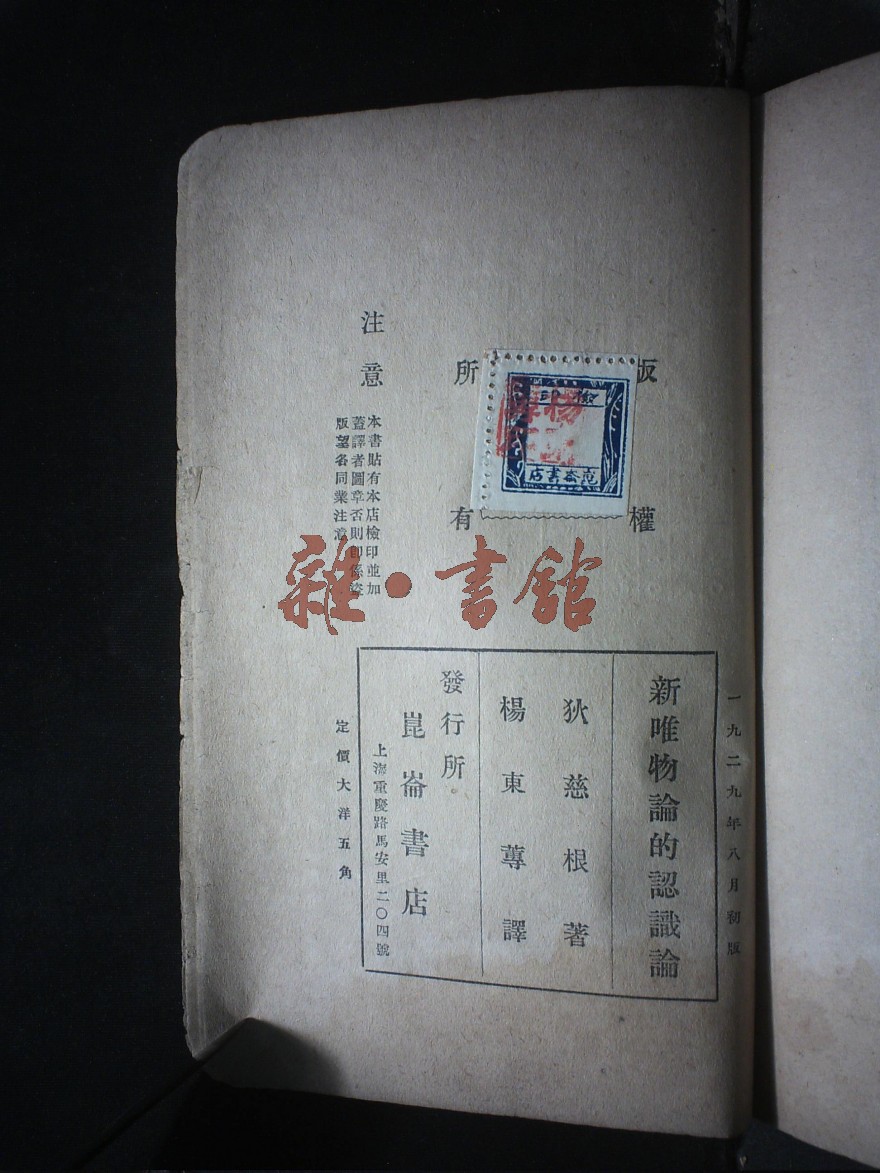 一九二九年八月初版
新唯物論的認識論
狄慈根著
楊東蓴譯
發行所
崑崙書店
上海重慶路馬安里二〇四號
定價大洋五角
版權
所有
檢印
崑崙書店
注意
本書貼有本店檢印並加
蓋譯者圖章否則即係盜
版望各同業注意
雜·書館